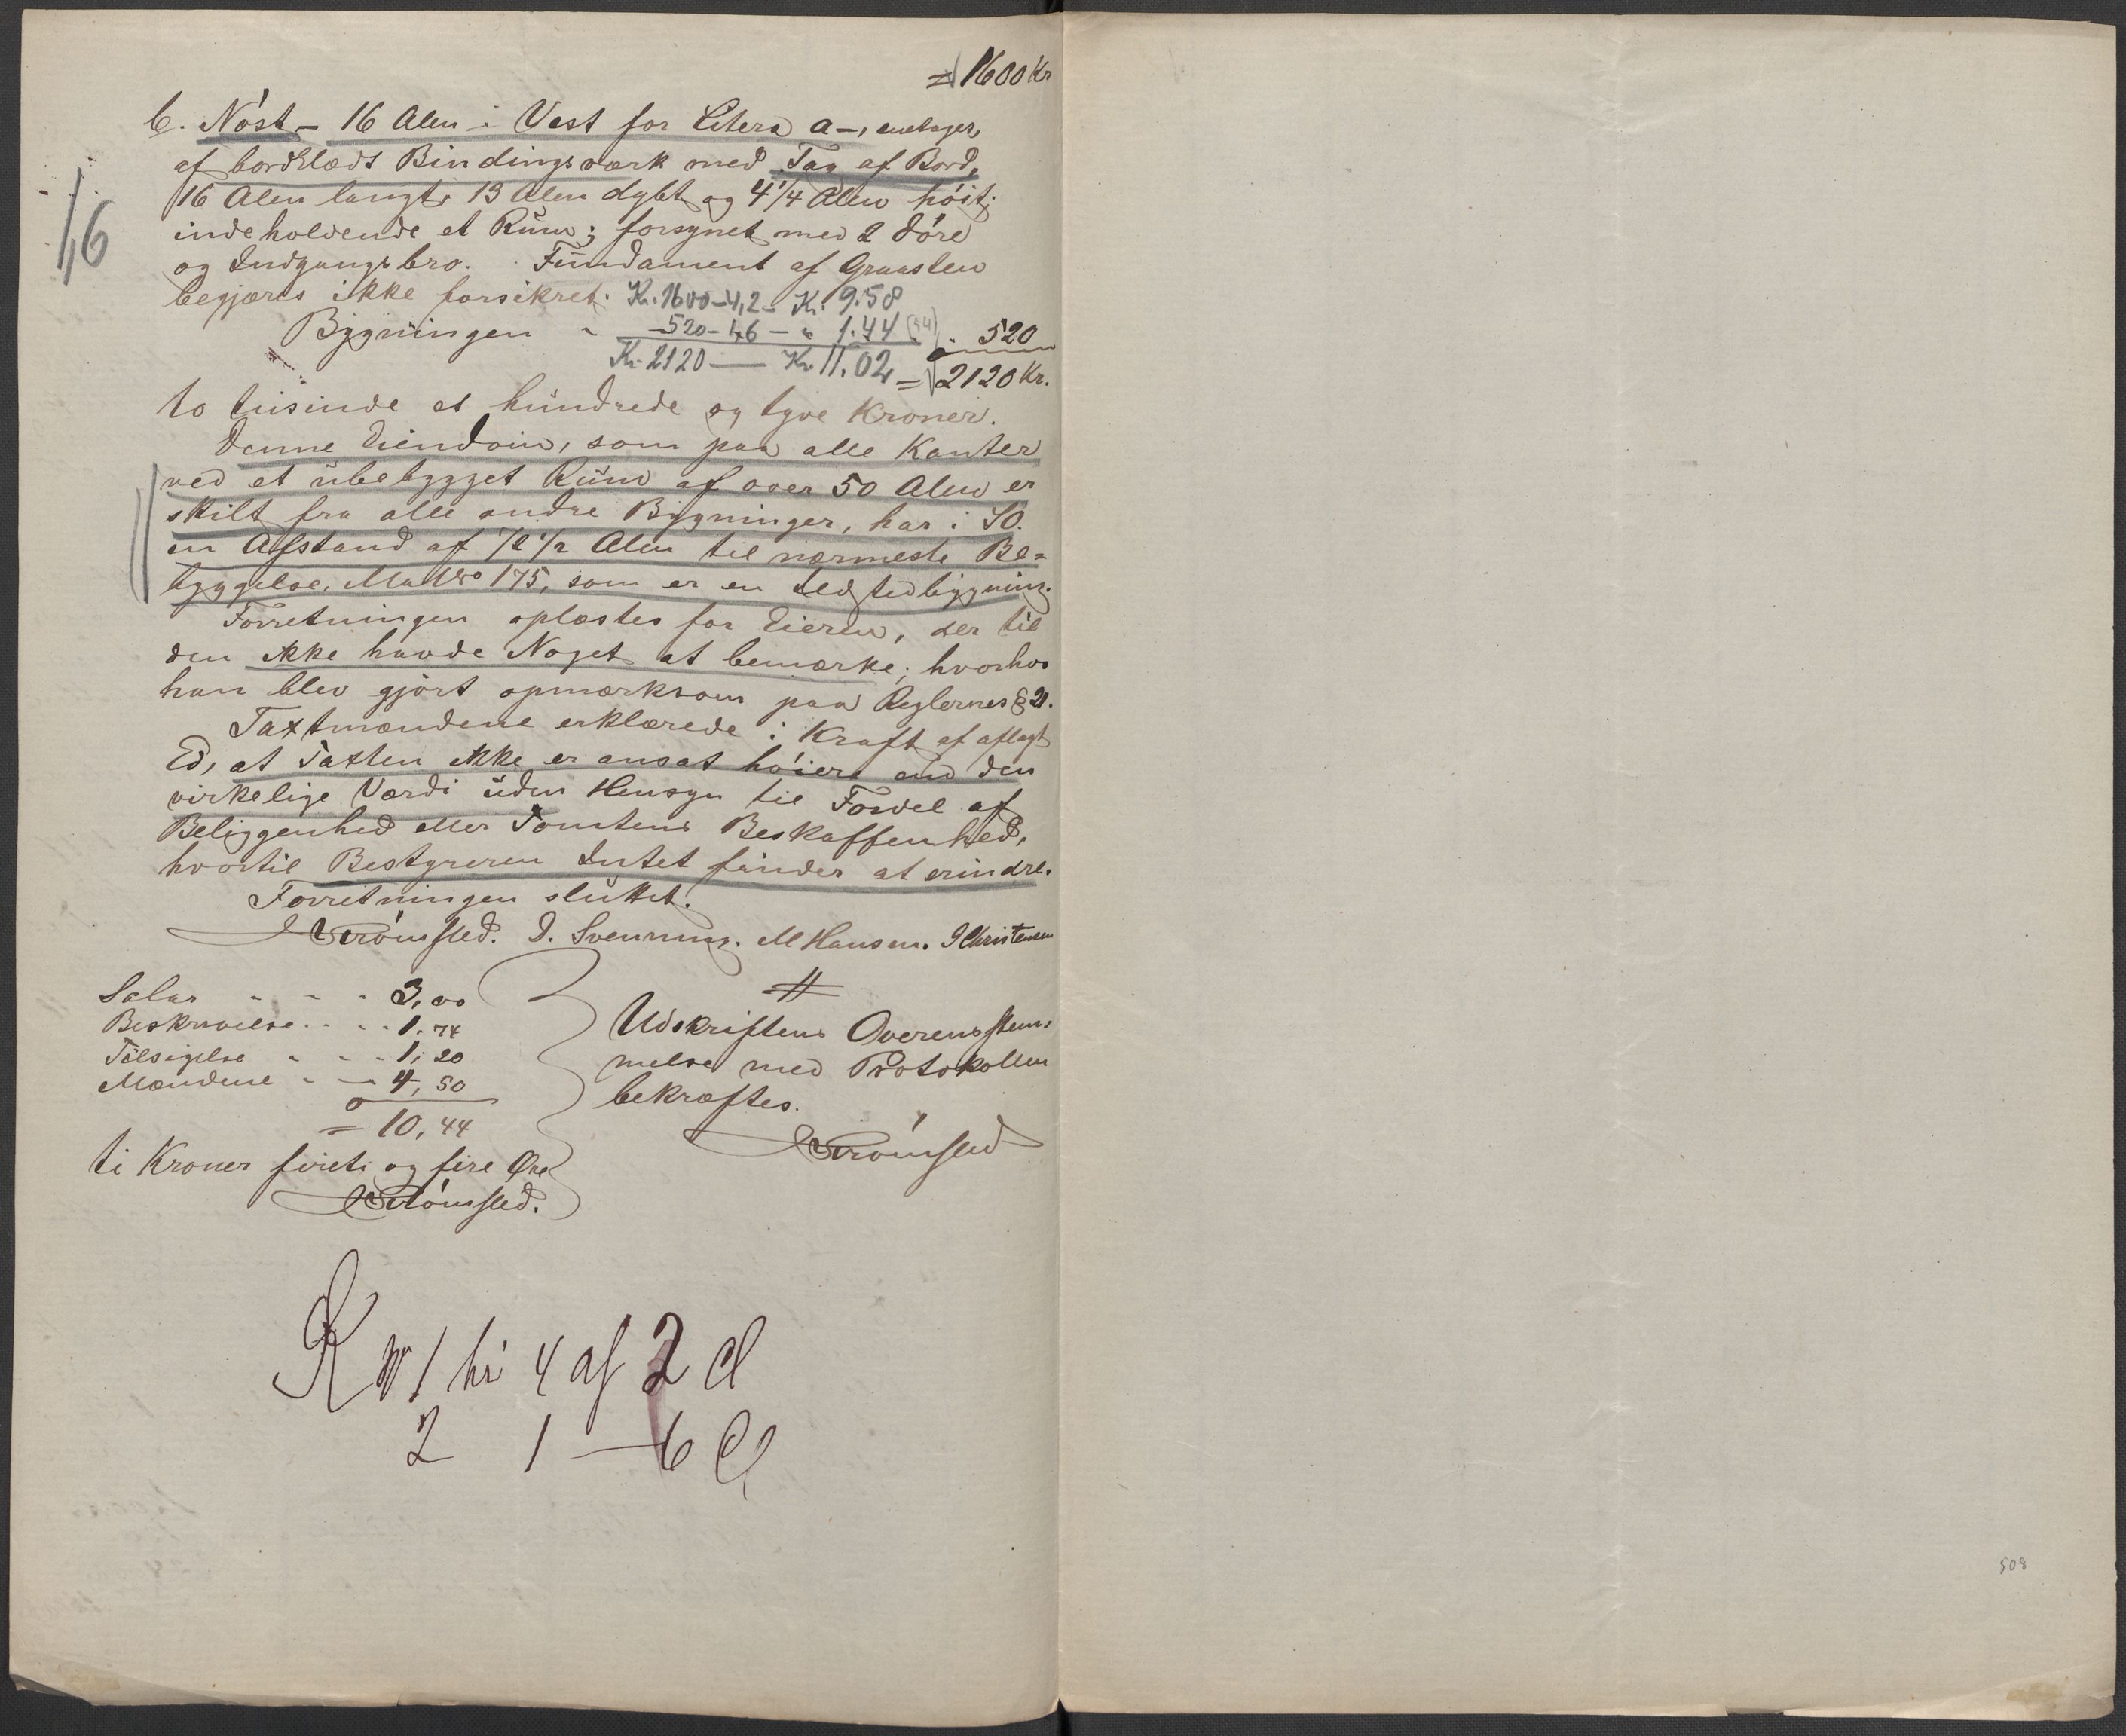 = 1600 Kr
b. Nøst - 16 Alen i Vest for Litera a -, enetages,
af bordklædt Bindingsværk med Tag af Bord,
16 Alen langt, 13 Alen dybt og 4 1/4 Alen høit;
46
indeholdende et Rum; forsynet med 2 Døre
og Indgangsbro. Fundament af Graasten
begjæres ikke forsikret. Kr. 1600 - 4,2 - Kr. 9.58
Bygningen " - 520 - 46 - " 1.44 (44) . 520
Kr. 2120 - Kr 11.02 = 2120 Kr.
to tusinde et hundrede og tyve Kroner.
Denne Eiendom, som paa alle Kanter
ved et ubebygget Rum af over 50 Alen er
skilt fra alle andre Bygninger, har i SO.
en Afstand af 72 1/2 Alen til nærmeste Be-
byggelse, Mat No 175, som er en Ildstedbygning.
Forretningen oplæstes for Eieren, der til
den ikke havde Noget at bemærke; hvorhos
han blev gjort opmærksom paa Reglernes § 21.
Taxtmændene erklærede i Kraft af aflagt
Ed, at Taxten ikke er ansat høiere end den
virkelige Værdi uden Hensyn til Fordel af
Beliggenhed eller Tomtens Beskaffenhed,
hvortil Bestyreren Intet finder at erindre.
Forretningen sluttet.
Strømsted. D. Svenning. M Hansen. I Christensen
Salær - - - 3,00
Beskrivelse . . . 1.74
Tilsigelse - - - 1,20
Mændene - - 4,50
= 10,44
ti Kroner fireti og fire Øre
Strømsted.
#
Udskriftens Overensstem-
melse med Protokollen
bekræftes.
Strømsted
R No 1 hi 4 af 2 Cl
2 1 - 6 Cl
508